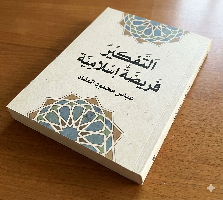 التفكير
فريضة إسلامية
عباس محمود العقاد